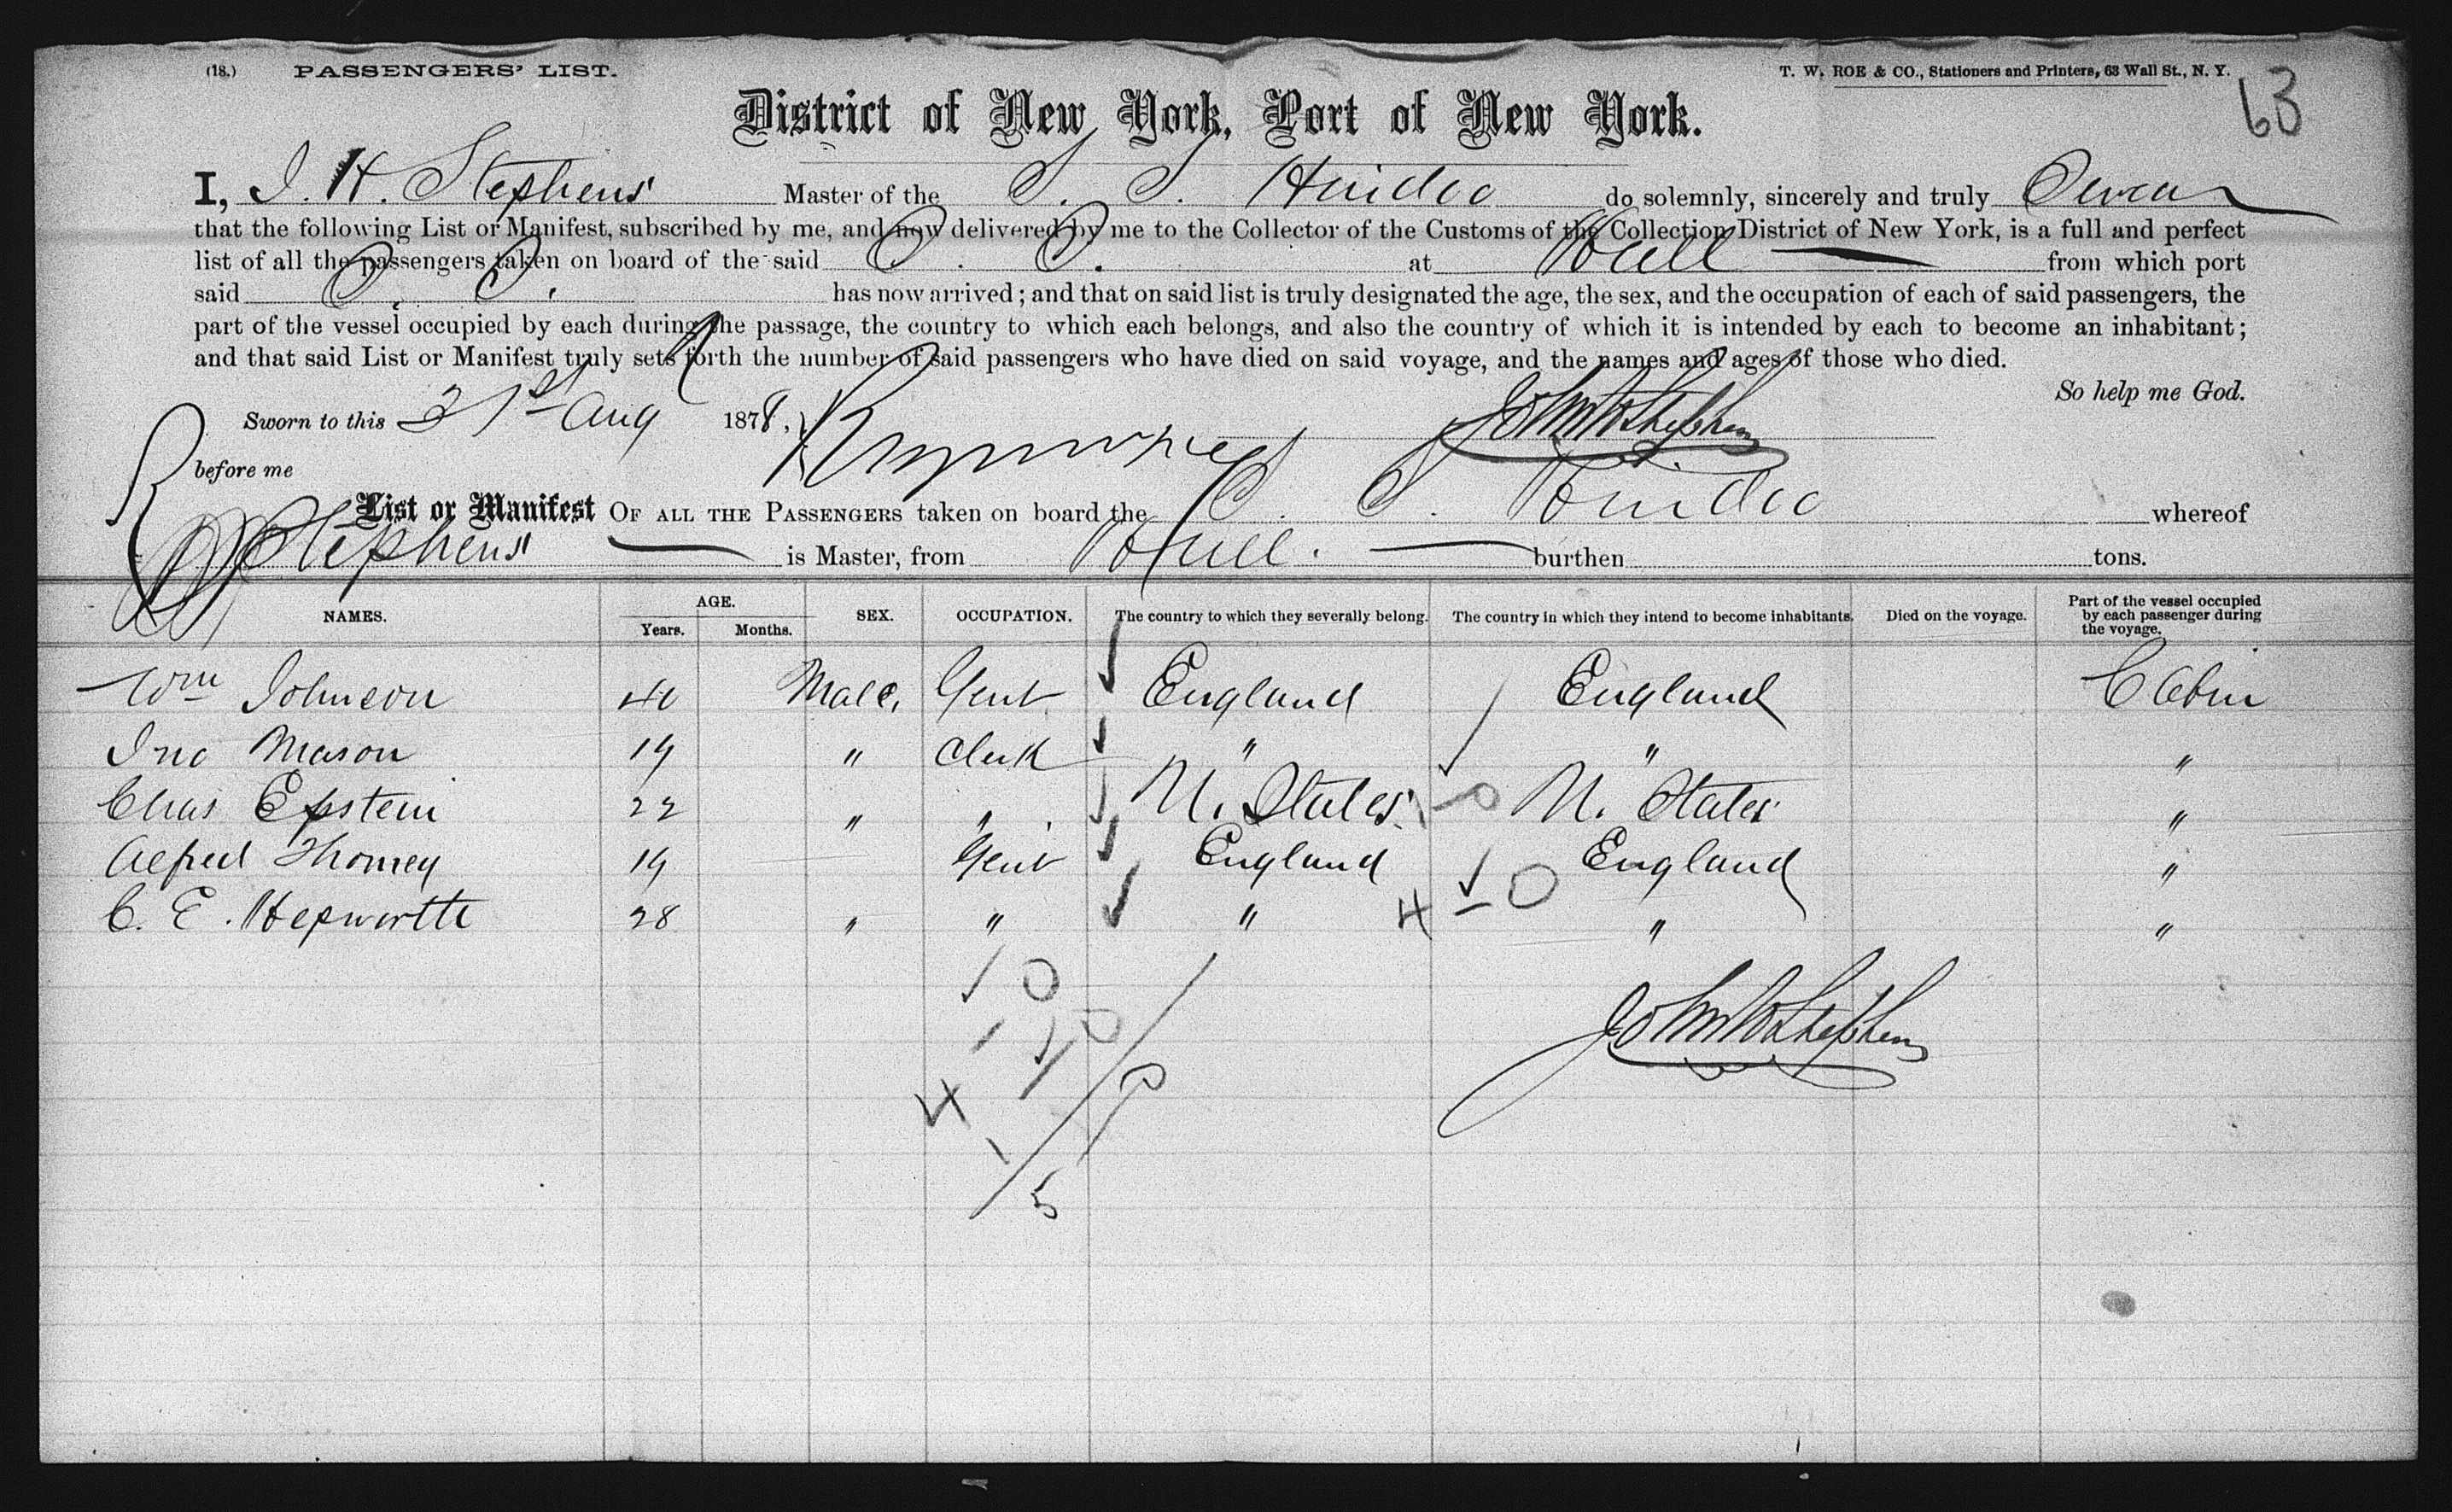 (18.) PASSENGERS' LIST. T. W. ROE & CO., Stationers and Printers, 63 Wall St., N. Y.
63
District of New York, Port of New York.
I, J. H. Stephens Master of the S. S. Hindoo do solemnly, sincerely and truly Swear
that the following List or Manifest, subscribed by me, and now delivered by me to the Collector of the Customs of the Collection District of New York, is a full and perfect
list of all the passengers taken on board of the said S. S. at Hull from which port
said S. S. has now arrived; and that on said list is truly designated the age, the sex, and the occupation of each of said passengers, the
part of the vessel occupied by each during the passage, the country to which each belongs, and also the country of which it is intended by each to become an inhabitant;
and that said List or Manifest truly sets forth the number of said passengers who have died on said voyage, and the names and ages of those who died.
So help me God.
Sworn to this 21st Aug 1878,
before me
List or Manifest OF ALL THE PASSENGERS taken on board the S. S. Hindoo whereof
Stephens is Master, from Hull. burthen tons.
NAMES. AGE. Years. Months. SEX. OCCUPATION. The country to which they severally belong. The country in which they intend to become inhabitants. Died on the voyage. Part of the vessel occupied by each passenger during the voyage.
Wm Johnson 40 Male, Gent England England Cabin
Jno Mason 19 " Clerk " " "
Chas Epstein 22 " " U. States U. States "
Alfred Thorney 19 Gent England England "
C. E. Hepworth 28 " " " 4 - 0 " "
1 0
4
1
5